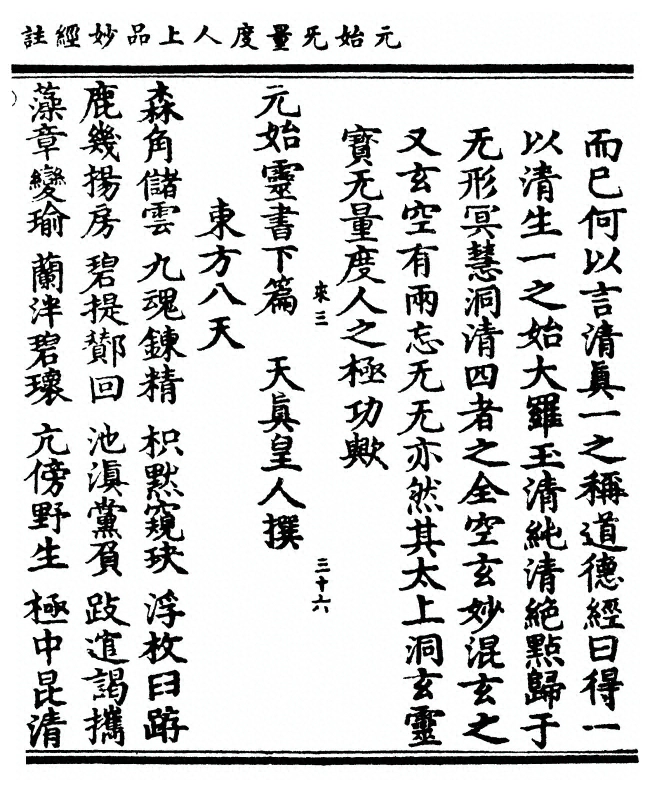 元始旡量度人上品妙經註
而已何以言清眞一之稱道德經曰得一
以清生一之始大羅玉清純清絶點歸于
无形冥慧洞清四者之全空玄妙混玄之
又玄空有兩忘无无亦然其太上洞玄靈
寳无量度人之極功歟
來三
三十六
元始靈書下篇 天眞皇人撰
東方八天
森角儲雲 九魂鍊精 枳黙窺玦 浮枚臼䟽
鹿幾揚房 碧提鄼回 池滇黨負 跂諠謁攜
藻章變瑜 蘭泮碧瓌 亢傍野生 極中昆清